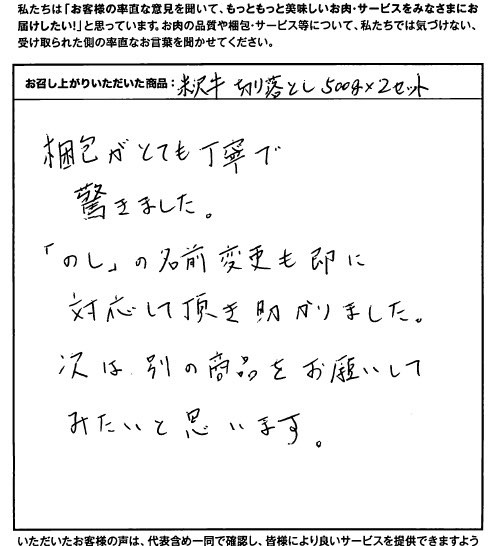 私たちは「お客様の率直な意見を聞いて、もっともっと美味しいお肉・サービスをみなさまにお
届けしたい!」と思っています。お肉の品質や梱包・サービス等について、私たちでは気づけない、
受け取られた側の率直なお言葉を聞かせてください。
お召し上がりいただいた商品：米沢牛 切り落とし 500g×2セット
梱包がとても丁寧で
驚きました。
「のし」の名前変更も即に
対応して頂き助かりました。
次は別の商品をお願いして
みたいと思います。
いただいたお客様の声は、代表含め一同で確認し、皆様により良いサービスを提供できますよう